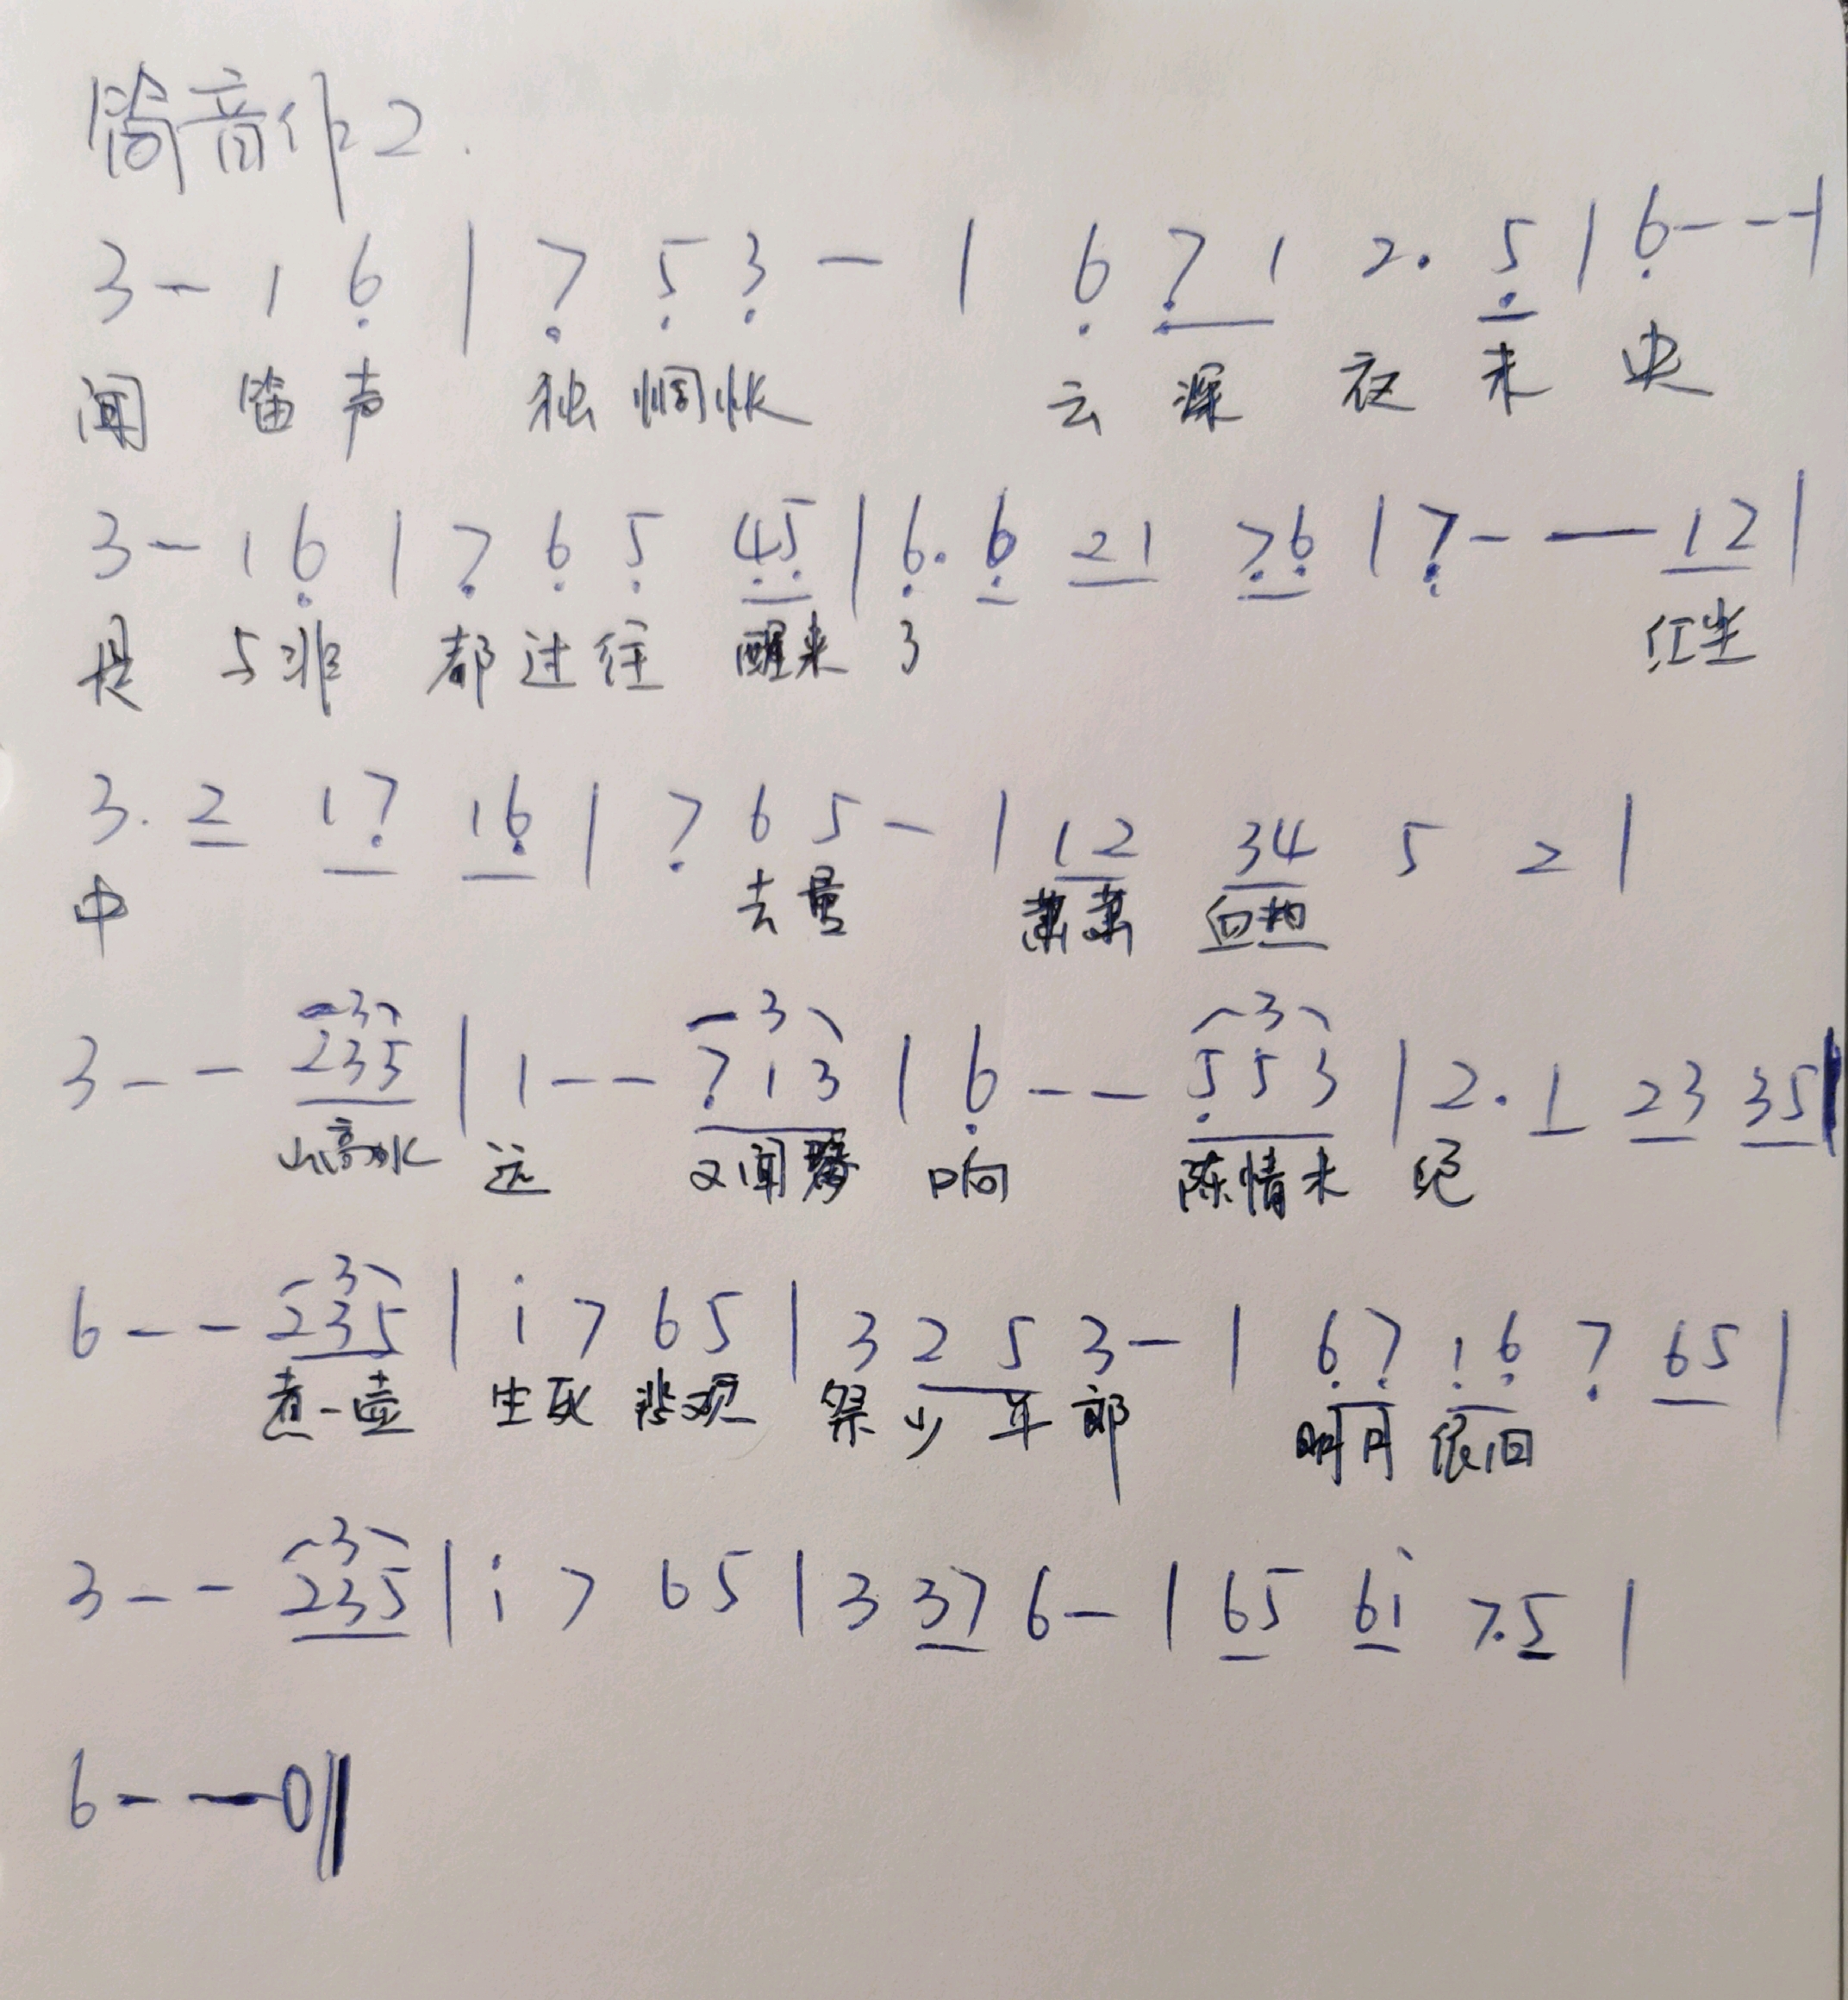 筒音作2.
3 - 1 6̣ | 7̣ 5̣ 3̣ - | 6̣ 7̣ 1 2. 5̣ | 6̣ - - - |
闻 笛 声 独 惆 怅 云 深 夜 未 央
3 - 1 6̣ | 7̣ 6̣ 5̣ 4̣5̣ | 6̣. 6̣ 21 7̣6̣ | 7̣ - - 12 |
是 与 非 都 过 往 醒来 了 红尘
3. 2 17̣ 16̣ | 7̣ 6 5 - | 12 34 5 2 |
中 去 量 萧萧 血热
3 - - 235 | 1 - - 7̣13 | 6̣ - - 5̣53 | 2. 1 23 35 |
3 3 3
山高水 远 又闻琴 响 陈情未 绝
6 - - 235 | i 7 65 | 3 2 5 3 - | 6̣7̣ 1̣6̣ 7̣ 65 |
3
煮一壶 生死 悲欢 祭 少 年 郎 明月 依旧
3 - - 235 | i 7 65 | 3 37 6 - | 65 6i 7.5 |
3
6 - - 0 ‖